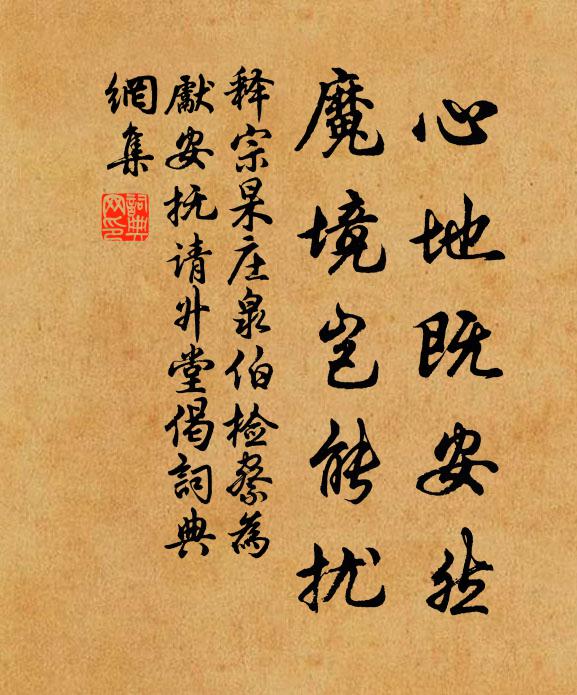 心地既安然
魔境岂能扰
释宗杲庄泉伯检察为
献安抚请升堂偈词典
網集
詞典
网印